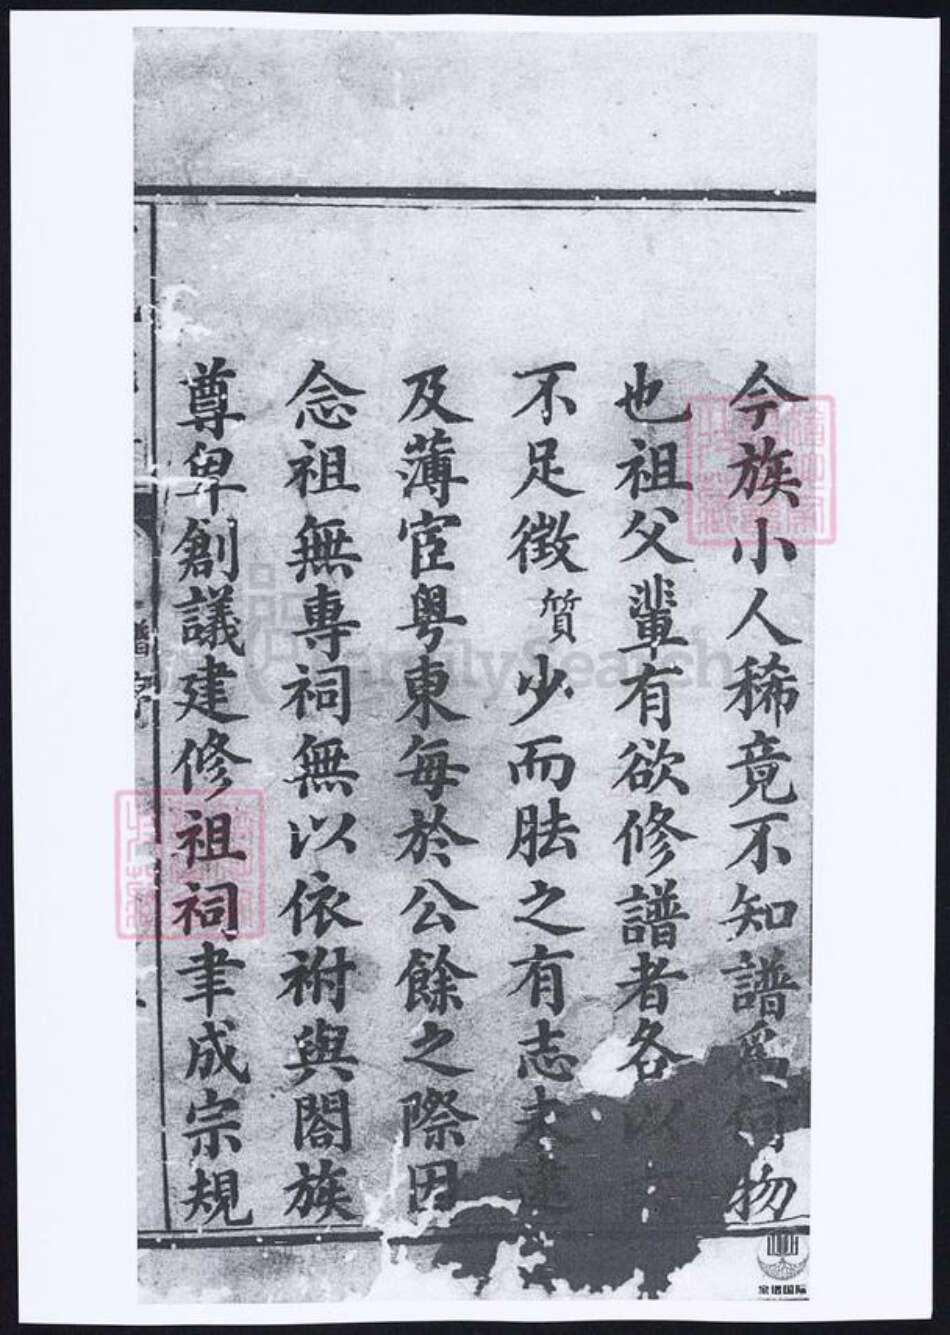 今族小人稀竟不知譜爲何物
也祖父輩有欲修譜者各以
不足徵質少而胠之有志未逮
及薄宦粤東每於公餘之際因
念祖無專祠無以依祔與閤族
尊卑創議建修祖祠聿成宗規
譜序
FamilySearch
家谱国际